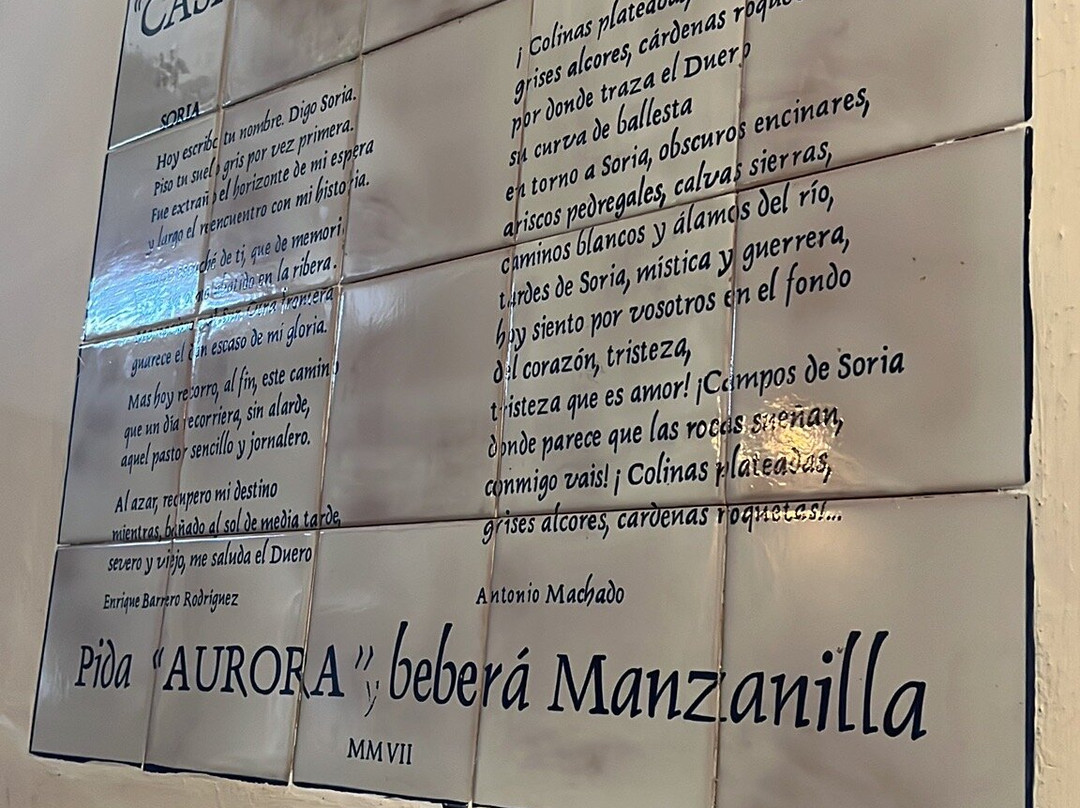 "CAS
SORIA
Hoy escribo tu nombre. Digo Soria.
Piso tu suelo gris por vez primera.
Fue extraño el horizonte de mi espera
y largo el reencuentro con mi historia.
de ti, que de memori
en la ribera.
frontera
guarece el don escaso de mi gloria.
Mas hoy recorro, al fin, este camino
que un día recorriera, sin alarde,
aquel pastor sencillo y jornalero.
Al azar, recupero mi destino
mientras, bañado al sol de media tarde,
severo y viejo, me saluda el Duero
Enrique Barrero Rodríguez
¡ Colinas plateadas,
grises alcores, cárdenas roque
por donde traza el Duero
su curva de ballesta
en torno a Soria, obscuros encinares,
ariscos pedregales, calvas sierras,
caminos blancos y álamos del río,
tardes de Soria, mística y guerrera,
hoy siento por vosotros en el fondo
del corazón, tristeza,
tristeza que es amor! ¡Campos de Soria
donde parece que las rocas sueñan,
conmigo vais! ¡ Colinas plateadas,
grises alcores, cárdenas roquetas!...
Antonio Machado
Pida "AURORA" y beberá Manzanilla
MMVII